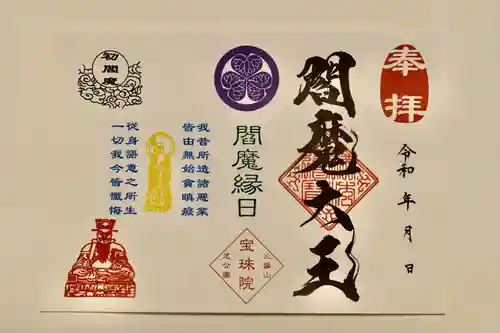 奉拝
令和 年 月 日
閻魔大王
閻魔縁日
三縁山
宝珠院
芝公園
我昔所造諸悪業
皆由無始貪瞋癡
従身語意之所生
一切我今皆懺悔
初閻魔